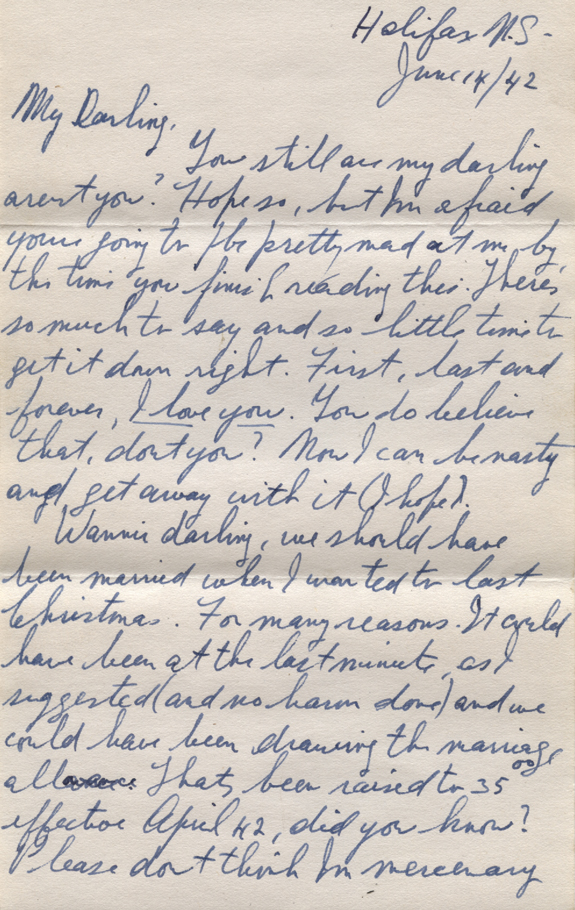 Halifax N.S-
June 14/42
My Darling,
You still are my darling
arent you? Hope so, but Im afraid
youre going to be pretty mad at me, by
the time you finish reading this. Theres
so much to say and so little time to
get it down right. First, last and
forever, I love you. You do believe
that, dont you? Now I can be nasty
and get away with it (I hope).
Wannie darling, we should have
been married when I wanted to last
Christmas. For many reasons. It could
have been at the last minute, as I
suggested (and no harm done) and we
could have been drawing the marriage
Thats been raised to 35 00
effective April 42, did you know?
Please don't think Im mercenary